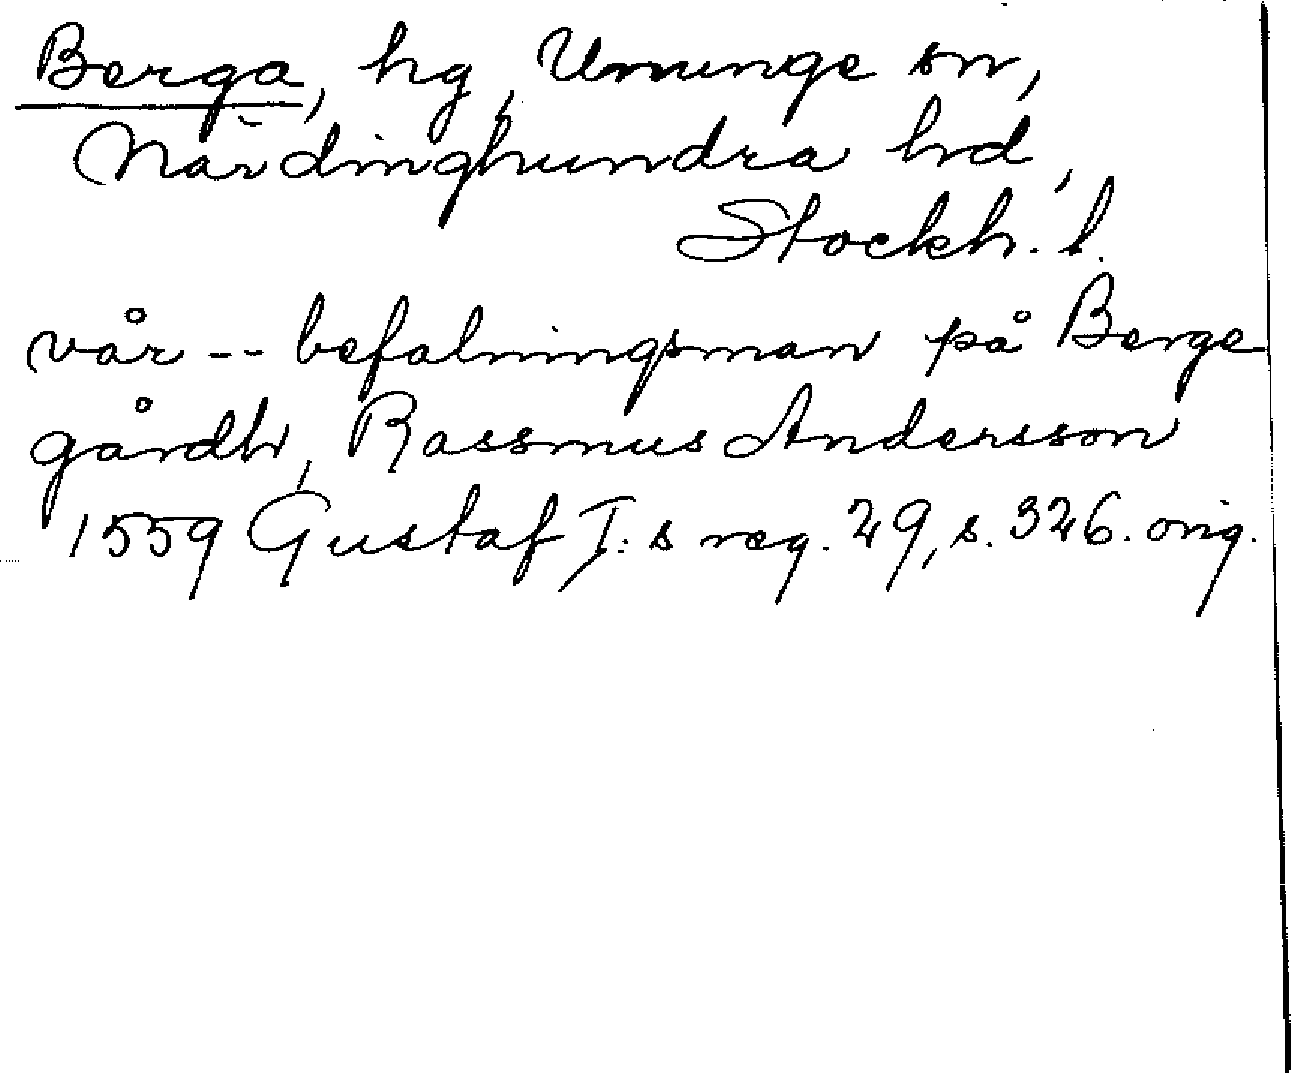 Berga, hg, Ununge sn,
Närdinghundra hd,
Stockh. l.
vår -- befalningsman på Berge
gårdh, Rassmus Andersson
1559 Gustaf I:s reg. 29, s. 326. orig.